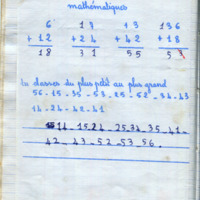 mathématiques
6 17 13 136
+12 +24 +42 +18
18 31 55 53
du plus petit au plus grand
56-15-35-53-25-52-34-43
14-24-42-41
14-15.24-25.34.35-41-
42-43-52-53.56.